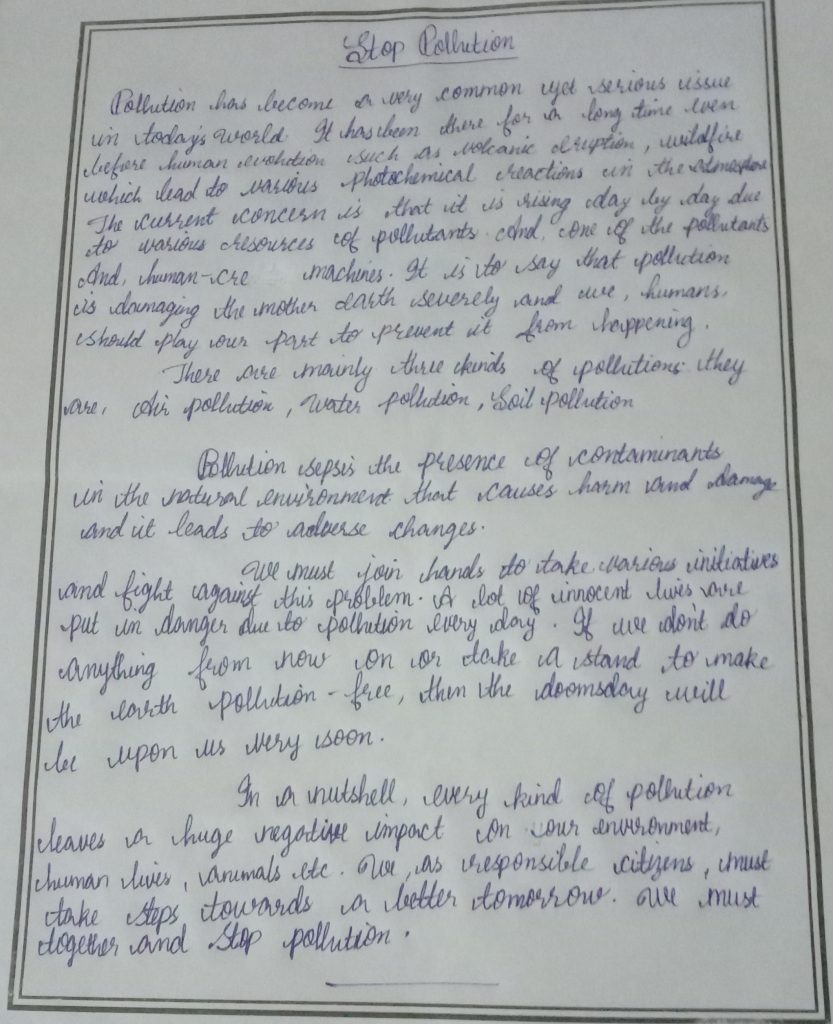 Stop Pollution
Pollution has become a very common yet serious issue
in today's world. It has been there for a long time even
before human evolution such as volcanic eruption, wildfire
which lead to various photochemical reactions in the atmosphere
The current concern is that it is rising day by day due
to various resources of pollutants. And, one of the pollutants
And, human-cre machines. It is to say that pollution
is damaging the mother earth severely and we, humans,
should play our part to prevent it from happening.
There are mainly three kinds of pollutions: they
are, Air pollution, Water pollution, Soil pollution
Pollution is the presence of contaminants
in the natural environment that causes harm and damage
and it leads to adverse changes.
We must join hands to take various initiatives
and fight against this problem. A lot of innocent lives are
put in danger due to pollution every day. If we don't do
anything from now on or take a stand to make
the earth pollution-free, then the doomsday will
be upon us very soon.
In a nutshell, every kind of pollution
leaves a huge negative impact on our environment,
human lives, animals etc. We, as responsible citizens, must
take steps towards a better tomorrow. We must
together and stop pollution.